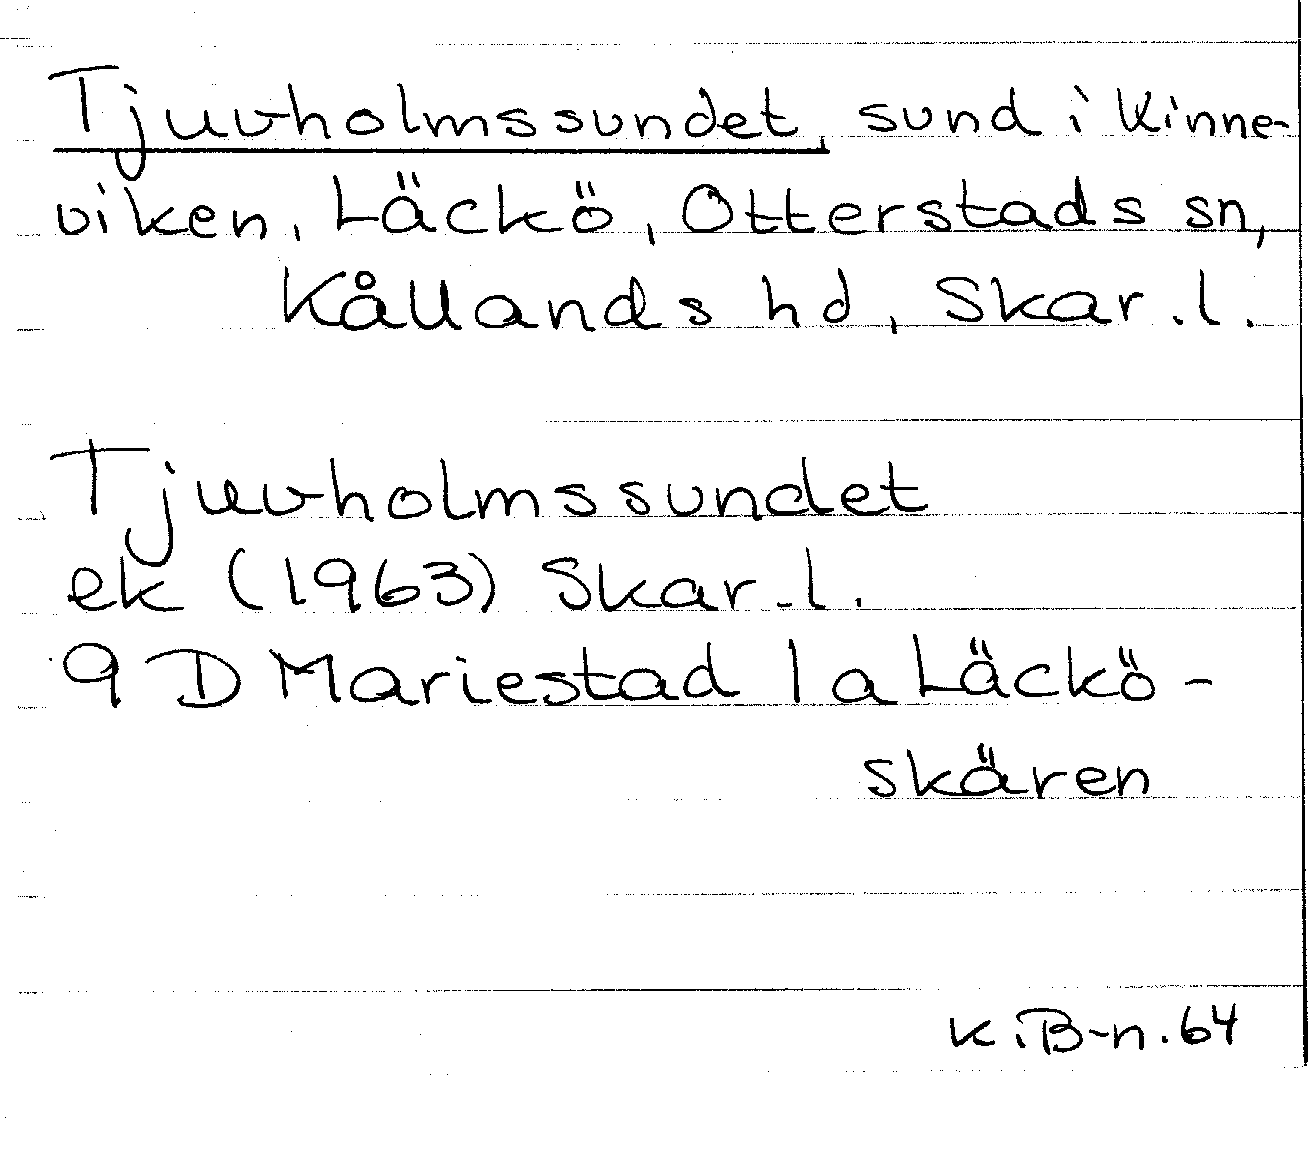 Tjuvholmssundet, sund i Kinne-
viken, Läckö, Otterstads sn,
Kållands hd, Skar.l.
Tjuvholmssundet
ek (1963) Skar.l.
9 D Mariestad 1 a Läckö-
skären
K.B-n.64